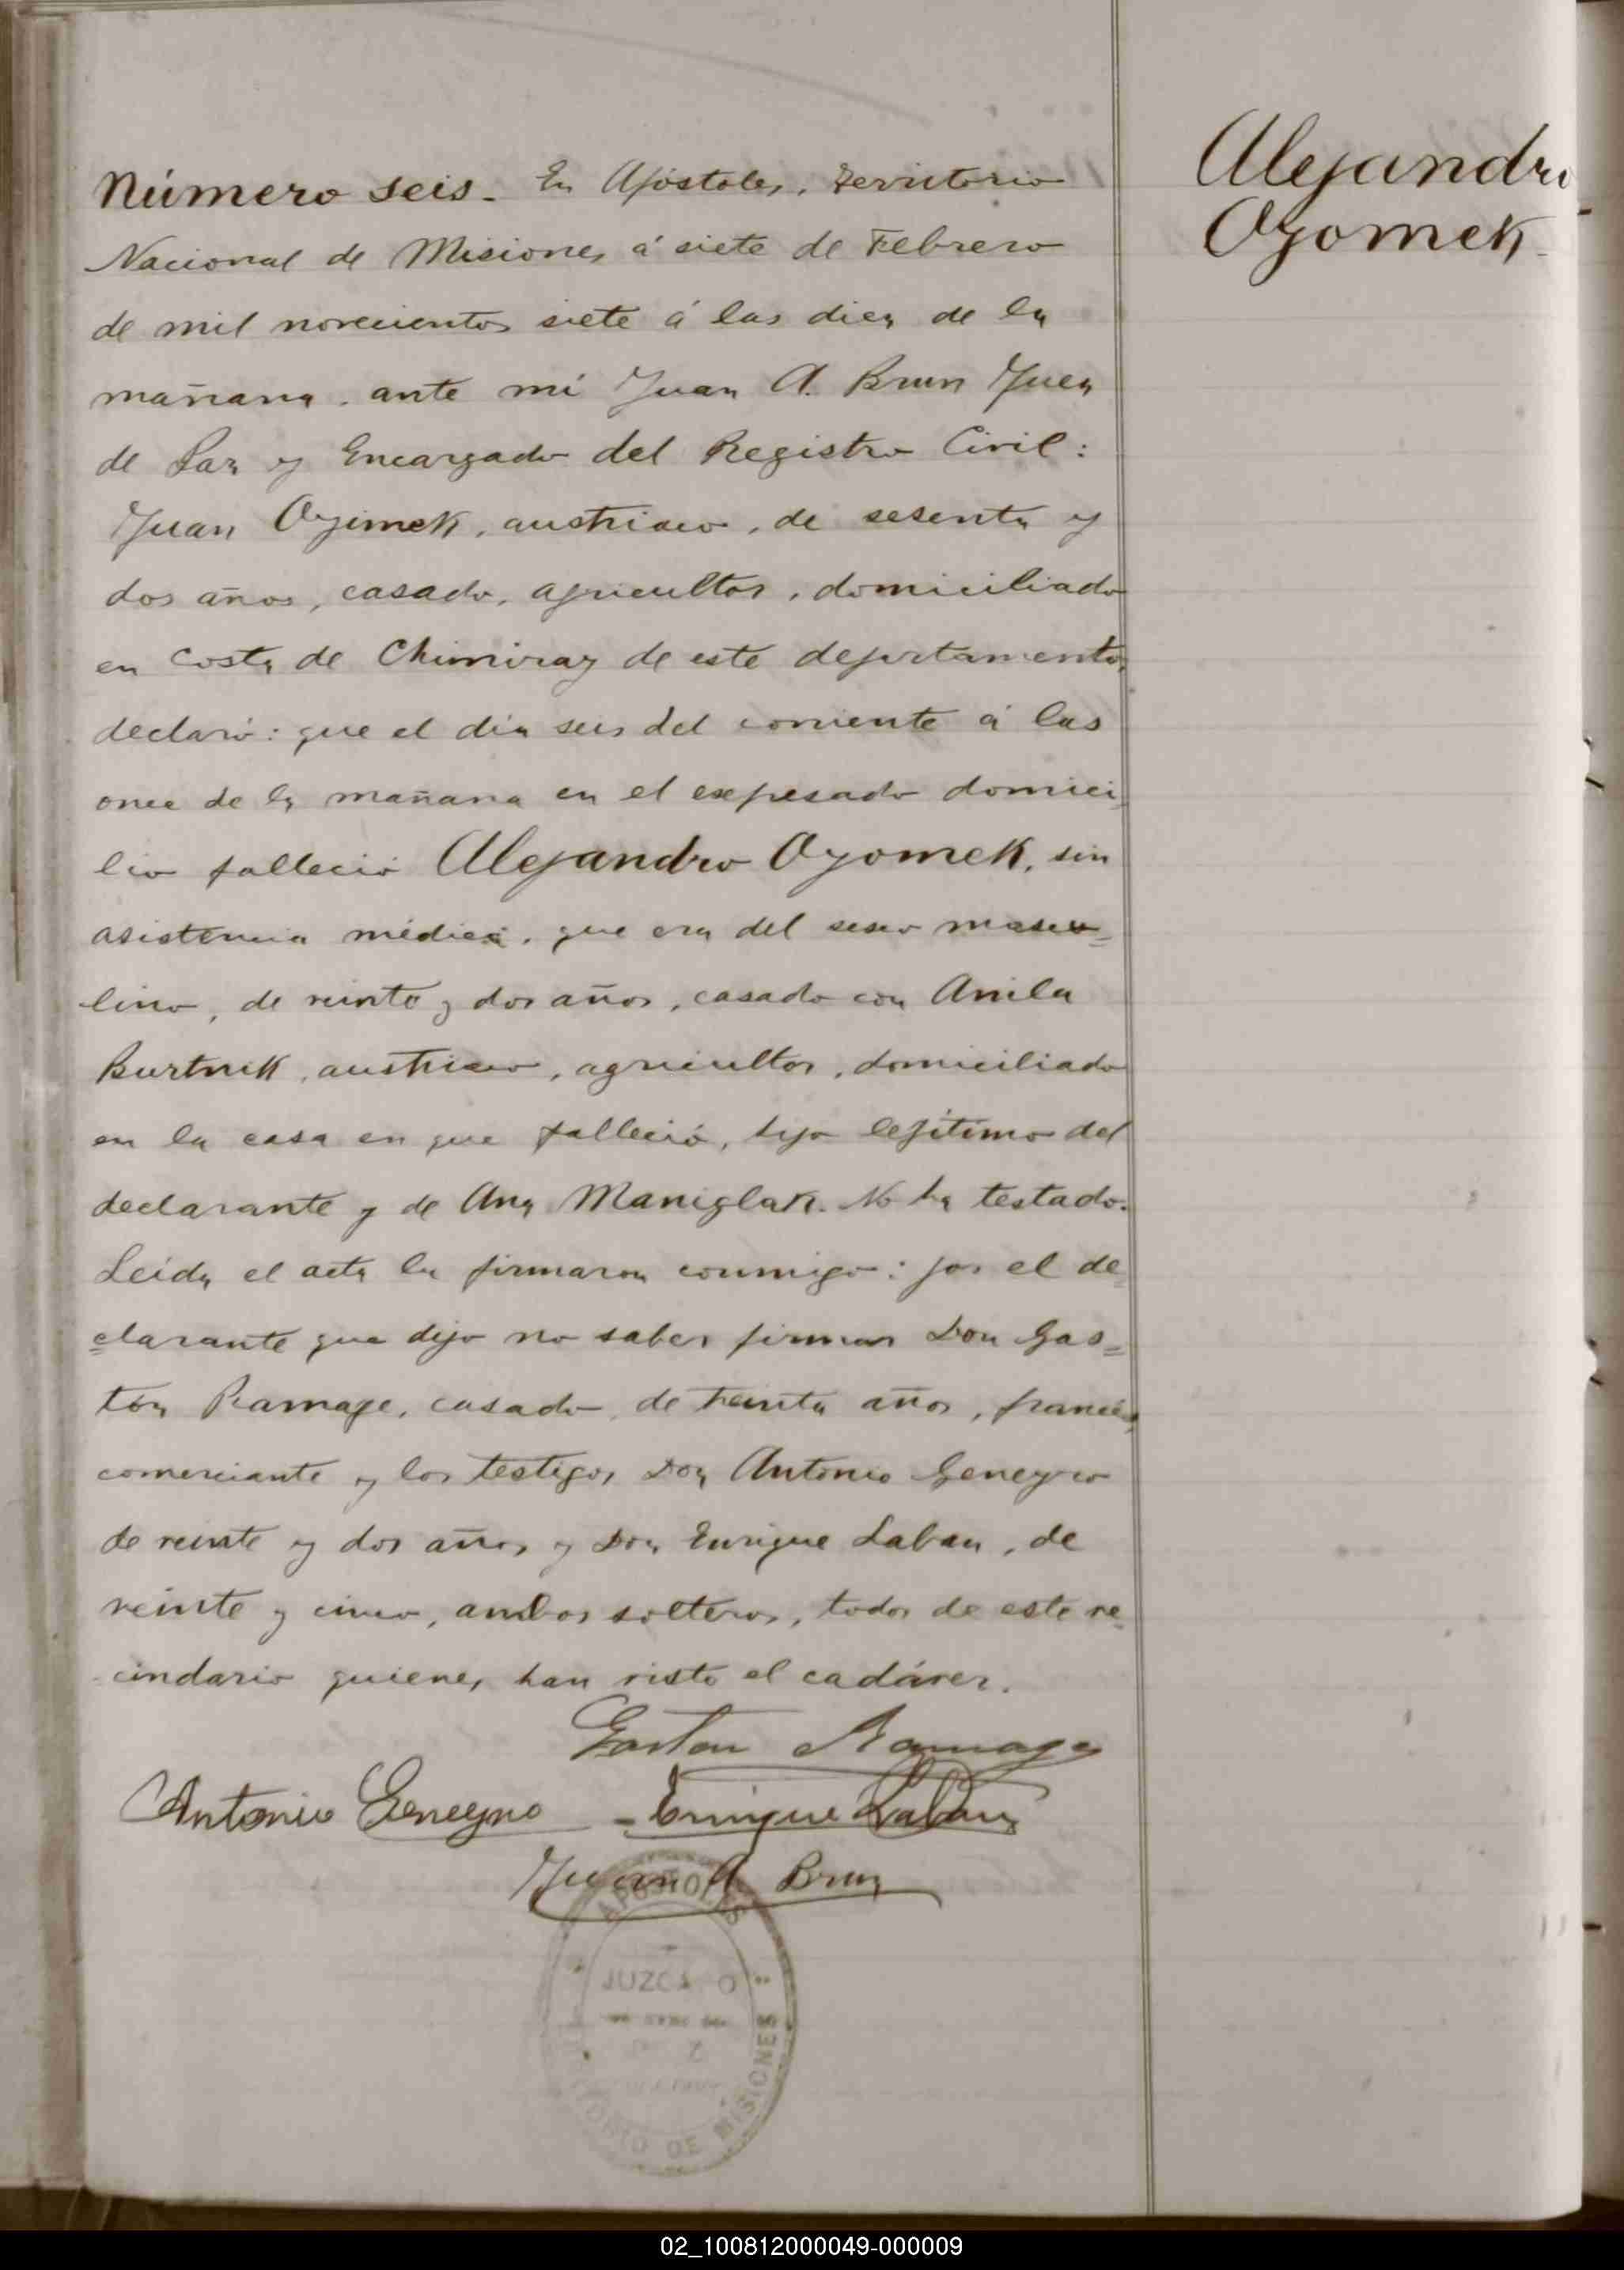 Número seis. En Apóstoles, Territorio
Nacional de Misiones á siete de Febrero
de mil novecientos siete á las diez de la
mañana, ante mi Juan A. Brun Juez
de Paz y Encargado del Registro Civil:
Juan Ozimek, austriaco, de sesenta y
dos años, casado, agricultor, domiciliado
en Costa de Chimiray de este departamento,
declaró: que el dia seis del corriente á las
once de la mañana en el expesado domici
lio falleció Alejandro Ozomek, sin
asistencia médica, que era del sexo mascu=
lino, de veinte y dos años, casado con Anila
Burtnik, austriaco, agricultor, domiciliado
en la casa en que falleció, hijo legítimo del
declarante y de Ana Maniglak. No ha testado.
Leida el acta la firmaron conmigo: por el de
clarante que dijo no saber firmar Don Gas=
tón Ramage, casado, de treinta años, francés,
comerciante y los testigos Don Antonio Genegro
de veinte y dos años y Don Enrique Laban, de
veinte y cinco, ambos solteros, todos de este ve
cindario quienes han visto el cadáver.
Gaston Ramage
Antonio Genegro Enrique Laban
Juan A Brun
APOSTOLES
JUZGADO
TORIO DE MISIONES
Alejandro
Ozomek
02_100812000049-000009